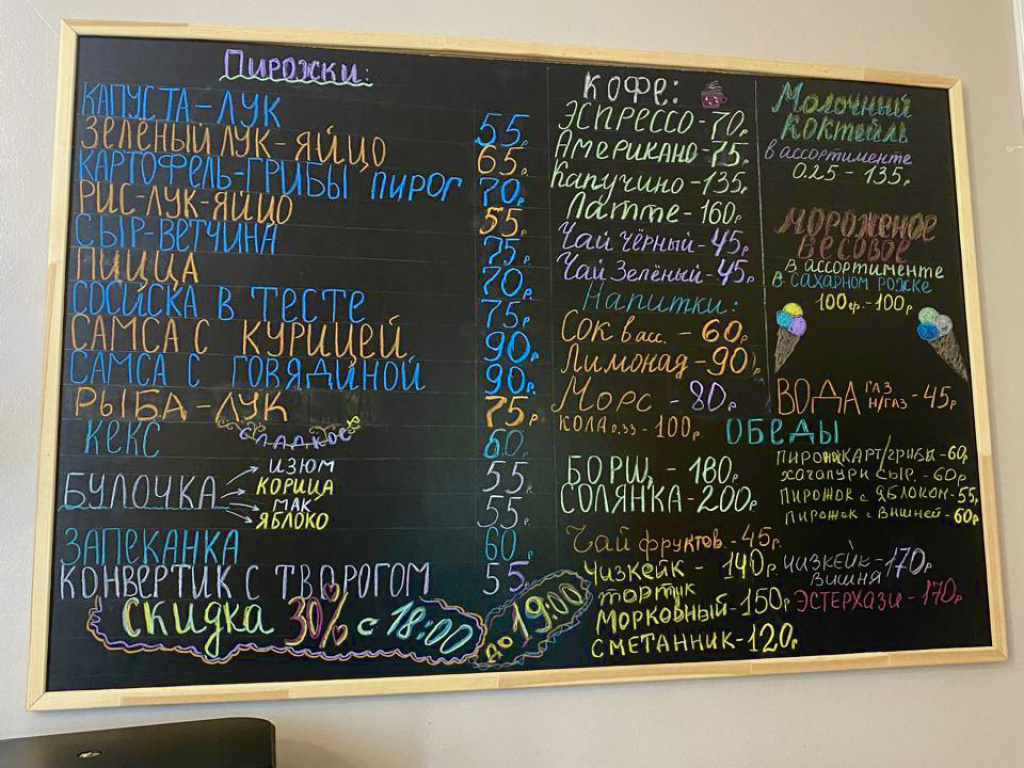 Пирожки:
КАПУСТА-ЛУК 55р
ЗЕЛЁНЫЙ ЛУК-ЯЙЦО 65р
КАРТОФЕЛЬ-ГРИБЫ ПИРОГ 70р
РИС-ЛУК-ЯЙЦО 55р
СЫР-ВЕТЧИНА 75р
ПИЦЦА 70р
СОСИСКА В ТЕСТЕ 75р
САМСА С КУРИЦЕЙ 90р
САМСА С ГОВЯДИНОЙ 90р
РЫБА-ЛУК 75р
СЛАДКОЕ
КЕКС 60р
БУЛОЧКА
ИЗЮМ 55р
КОРИЦА
МАК 55р
ЯБЛОКО
ЗАПЕКАНКА 60р
КОНВЕРТИК С ТВОРОГОМ 55р
СКИДКА 30% с 18:00 до 19:00
КОФЕ:
ЭСПРЕССО-70р
Американо-75р
Капучино-135р
Латте-160р
Чай чёрный-45р
Чай Зелёный-45р
Напитки:
Сок в асс. - 60р
Лимонад-90
Морс - 80р
КОЛА 0,33 - 100р
ОБЕДЫ
БОРЩ - 180р
СОЛЯНКА-200р
Чай фруктов.-45р
ЧИЗКЕЙК - 140р
ТОРТИК
МОРКОВНЫЙ-150р
СМЕТАННИК-120р
Молочный
Коктейль
в ассортименте
0.25 - 135р
МОРОЖЕНОЕ
ВЕСОВОЕ
в ассортименте
в сахарном рожке
100 - 100р
ВОДА ГАЗ Н/ГАЗ - 45р
ПИРОЖ КАРТ/ГРИБЫ - 60р
ХАЧАПУРИ СЫР. - 60р
ПИРОЖОК с ЯБЛОКОМ-55р
ПИРОЖОК с ВИШНЕЙ-60р
ЧИЗКЕЙК-170р
ВИШНЯ
ЭСТЕРХАЗИ - 170р